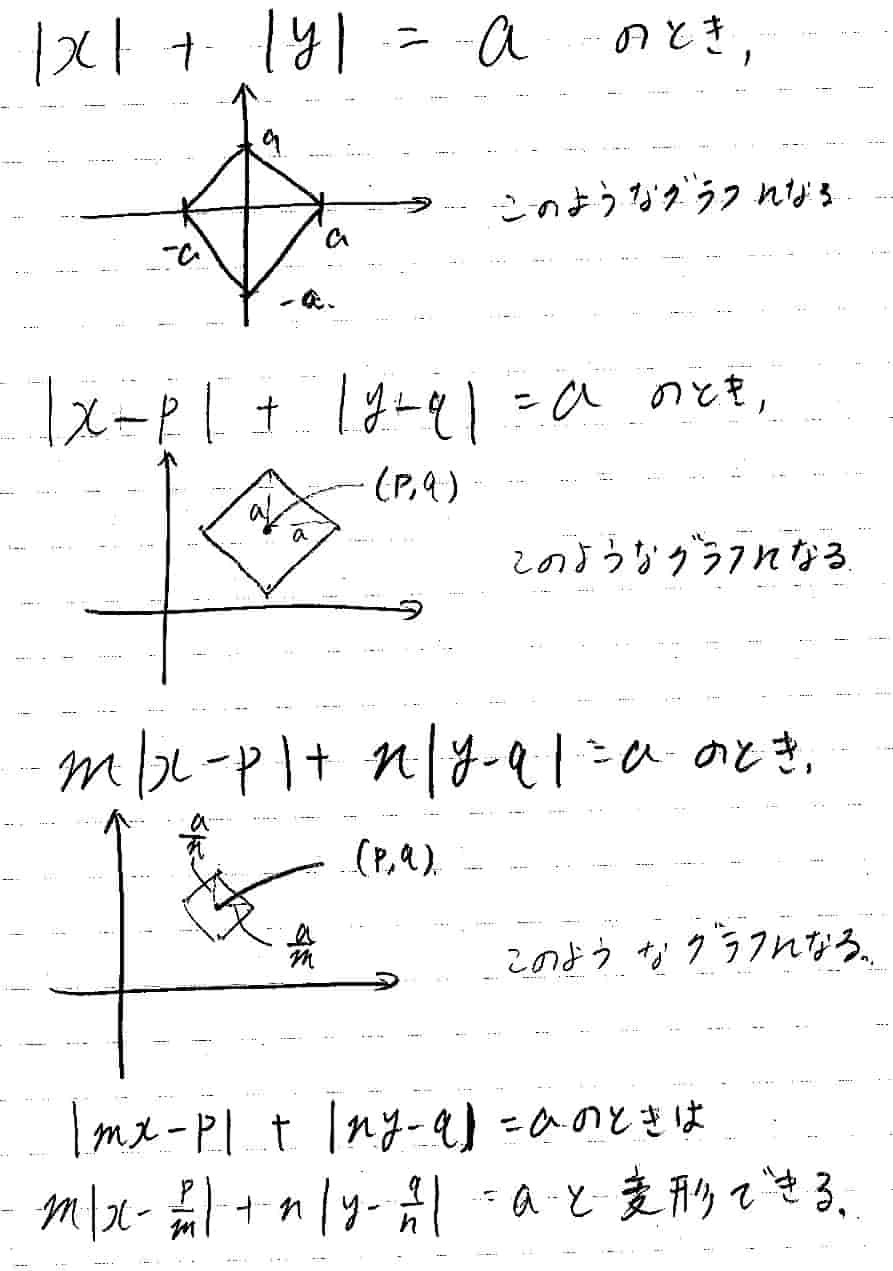 |x| + |y| = a のとき,
a
-a
a
-a.
このようなグラフになる
|x-p| + |y-q| = a のとき,
(p,q)
a
a
このようなグラフになる
m|x-p| + n|y-q| = a のとき,
a/n
(p,q)
a/m
このようなグラフになる.
|mx-p| + |ny-q| = a のときは
m|x-p/m| + n|y-q/n| = a と変形できる.